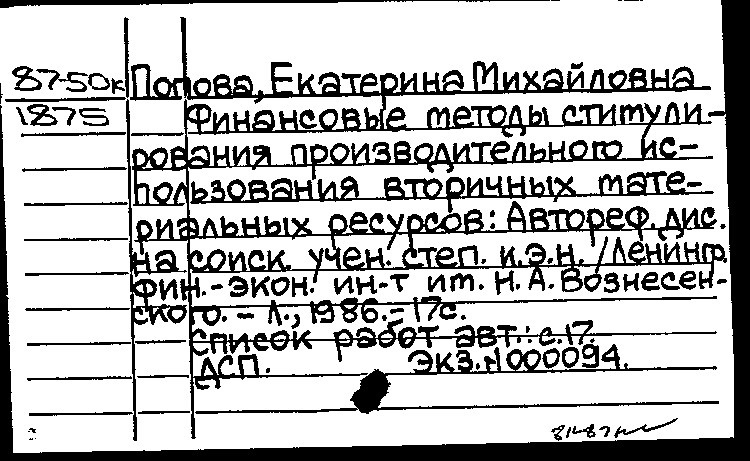 87-50к Попова, Екатерина Михайловна
1875 Финансовые методы ститули-
рования производительного ис-
пользования вторичных мате-
риальных ресурсов: Автореф. дис.
на соиск. учен. степ. к.э.н. /Ленингр.
фин.-экон. ин-т им. Н.А. Вознесен-
ского. - Л., 1986. - 17с.
Список работ авт.: с.17.
ДСП. Экз.N000094.